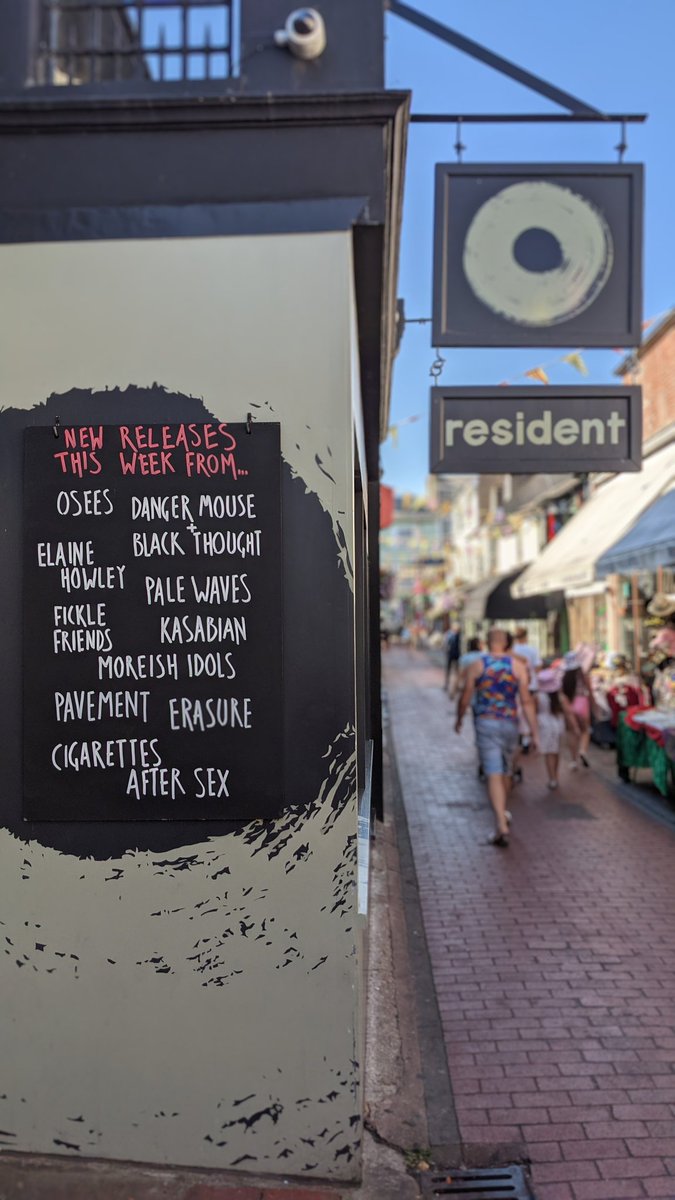 NEW RELEASES
THIS WEEK FROM...
OSEES
DANGER MOUSE
+
BLACK THOUGHT
ELAINE
HOWLEY
PALE WAVES
FICKLE
FRIENDS
KASABIAN
MOREISH IDOLS
PAVEMENT
ERASURE
CIGARETTES
AFTER SEX
resident